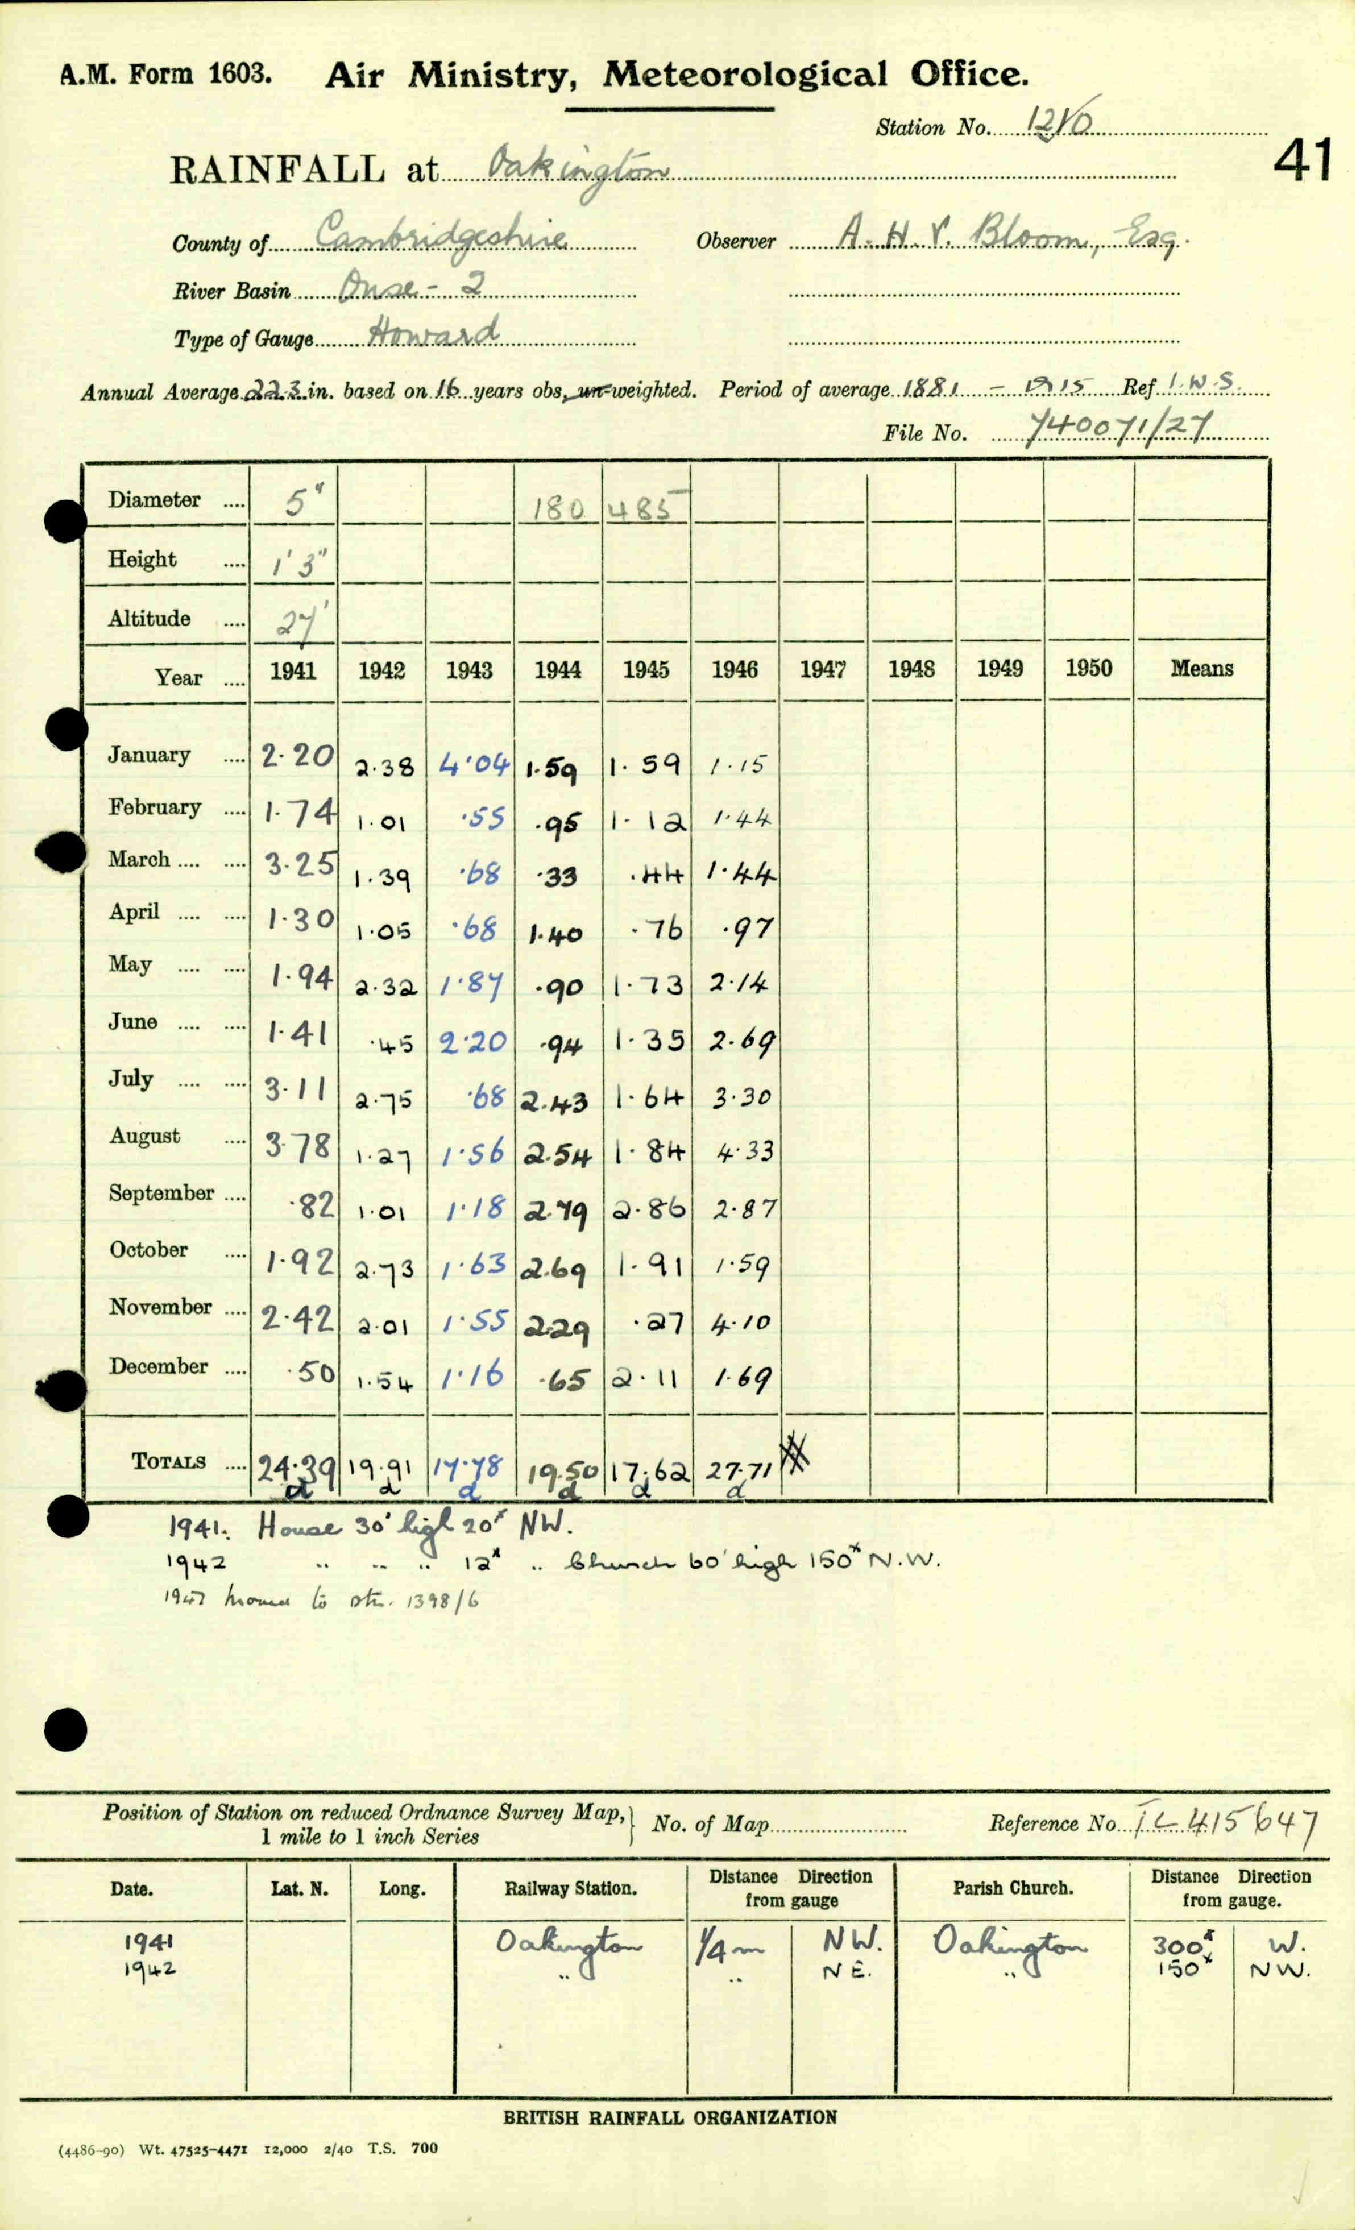 A.M. Form 1603. Air Ministry, Meteorological Office.
Station No.
41
RAINFALL at Oakington
County of Cambridgeshire Observer A. H. V. Bloom, Esq.
River Basin Ouse - 2
Type of Gauge Howard
Annual Average 22.3 in. based on 16 years obs, un-weighted. Period of average 1881 - 1915 Ref I.W.S.
File No. 740071/27
Diameter .... 5" 180 485
Height .... 1' 3"
Altitude .... 27'
Year .... 1941 1942 1943 1944 1945 1946 1947 1948 1949 1950 Means
January .... 2.20 2.38 4.04 1.59 1.59 1.15
February .... 1.74 1.01 .55 .95 1.12 1.44
March .... .... 3.25 1.39 .68 .33 .44 1.44
April .... .... 1.30 1.05 .68 1.40 .76 .97
May .... .... 1.94 2.32 1.87 .90 1.73 2.14
June .... .... 1.41 .45 2.20 .94 1.35 2.69
July .... .... 3.11 2.75 .68 2.43 1.64 3.30
August .... 3.78 1.27 1.56 2.54 1.84 4.33
September .... .82 1.01 1.18 2.79 2.86 2.87
October .... 1.92 2.73 1.63 2.69 1.91 1.59
November .... 2.42 2.01 1.55 2.29 .27 4.10
December .... .50 1.54 1.16 .65 2.11 1.69
TOTALS .... 24.39 19.91 17.78 19.50 17.62 27.71
d d d d d d
1941. House 30' high 20x NW.
1942 " " " 12x " Church 60' high 150x N.W.
1947 moved to stn. 1398/6
Position of Station on reduced Ordnance Survey Map, } No. of Map Reference No. TL 415647
1 mile to 1 inch Series
Date. Lat. N. Long. Railway Station. Distance Direction from gauge Parish Church. Distance Direction from gauge.
1941 Oakington 1/4 m NW. Oakington 300x W.
1942 " " N E. " 150x NW.
BRITISH RAINFALL ORGANIZATION
(4486-90) Wt. 47525-4471 12,000 2/40 T.S. 700